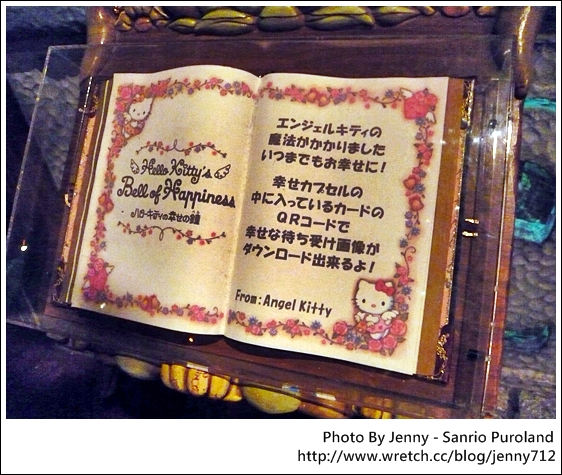 Hello Kitty's
Bell of Happiness
ハローキティの幸せの鐘
エンジェルキティの
魔法がかかりました
いつまでもお幸せに!
幸せカプセルの
中に入っているカードの
QRコードで
幸せな待ち受け画像が
ダウンロード出来るよ!
From:Angel Kitty
Photo By Jenny - Sanrio Puroland
http://www.wretch.cc/blog/jenny712